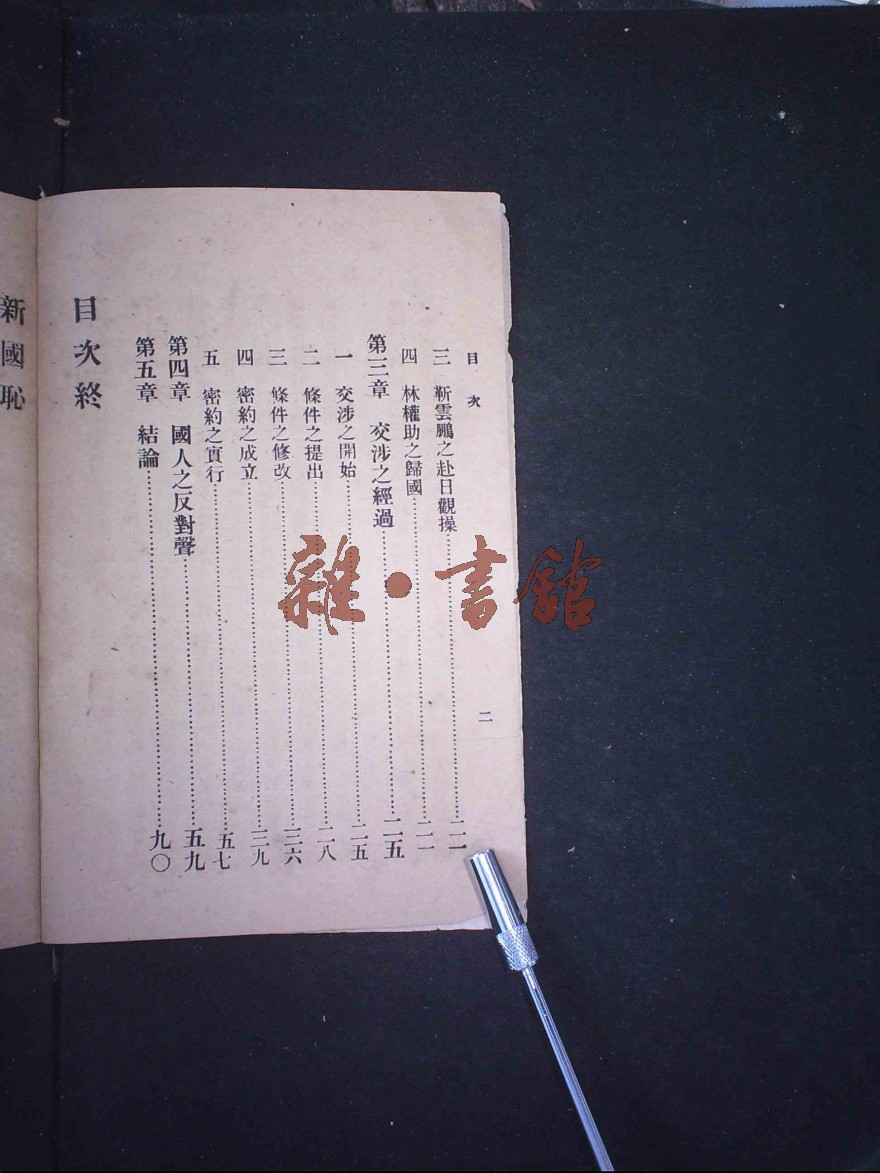 目次
二
三 靳雲鵬之赴日觀操……二一
四 林權助之歸國……二一
第三章 交涉之經過……二五
一 交涉之開始……二五
二 條件之提出……二八
三 條件之修改……三六
四 密約之成立……三九
五 密約之實行……五七
第四章 國人之反對聲……五九
第五章 結論……九〇
目次終
新國恥
雜·書館